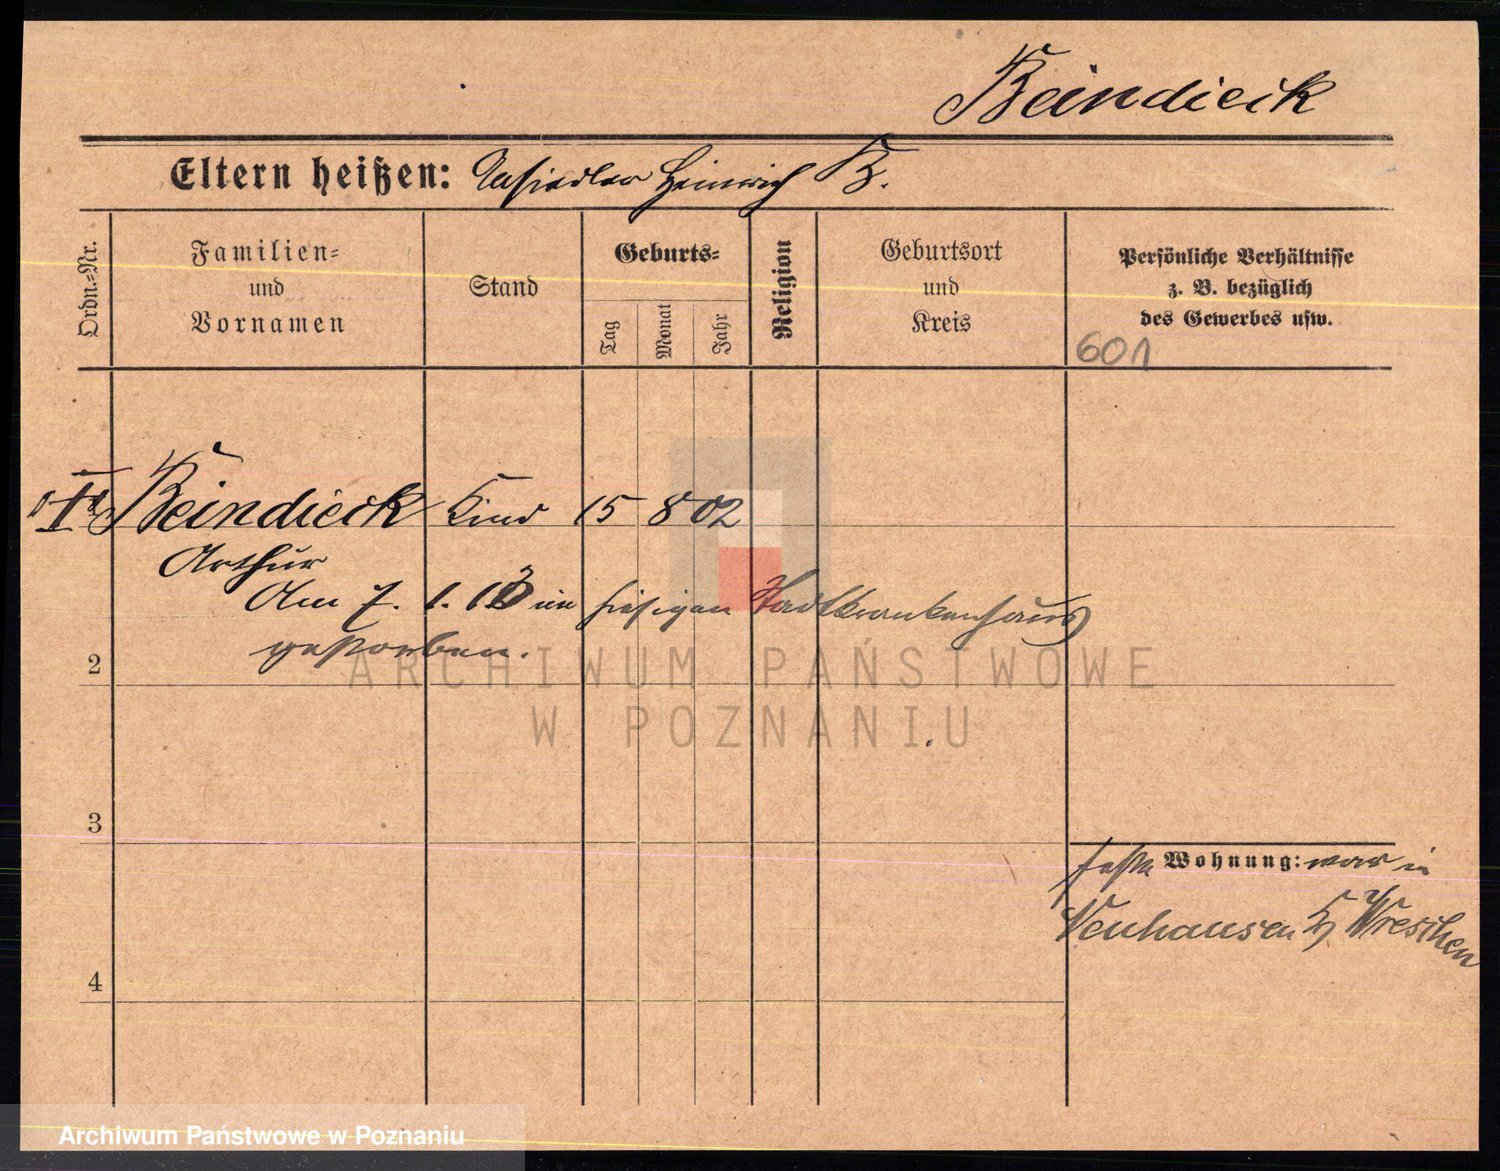 Beindieck
Eltern heißen: Ansiedler Heinrich B.
Ordn.-Nr.
Familien-
und
Vornamen
Stand
Geburts-
Tag
Monat
Jahr
Religion
Geburtsort
und
Kreis
Persönliche Verhältnisse
z. B. bezüglich
des Gewerbes usw.
601
Beindieck Kind 15 8 02
Arthur
Am 7. 1. 13 im hiesigen Stadtkrankenhaus
gestorben.
2
3
4
feste Wohnung: war in
Neuhausen Kr Wreschen
ARCHIWUM PAŃSTWOWE
W POZNANIU
Archiwum Państwowe w Poznaniu